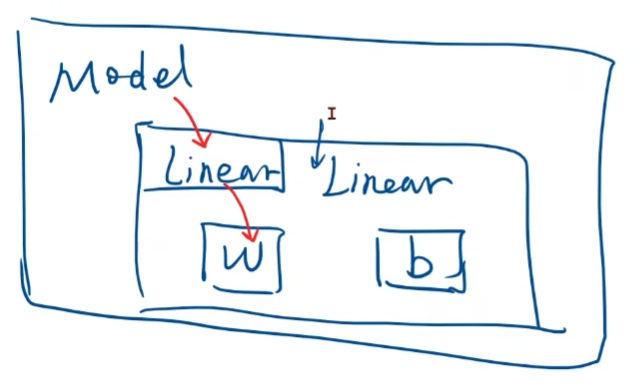 Model
Linear Linear
W b